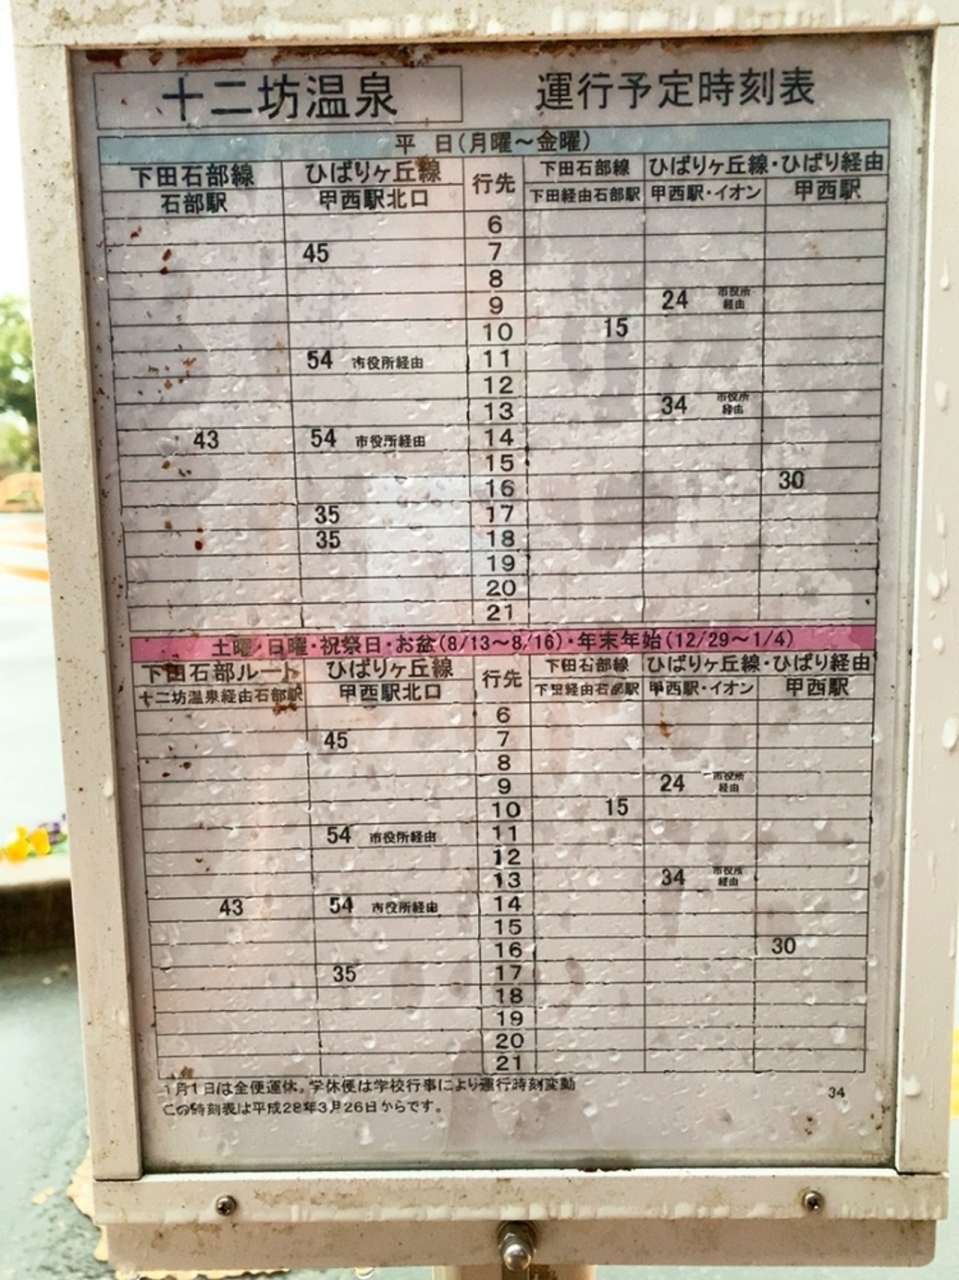 十二坊温泉 運行予定時刻表
平 日(月曜～金曜)
下田石部線 ひばりヶ丘線 行先 下田石部線 ひばりヶ丘線・ひばり経由
石部駅 甲西駅北口 下田経由石部駅 甲西駅・イオン 甲西駅
6
45 7
8
9 24 市役所経由
10 15
54 市役所経由 11
12
13 34 市役所経由
43 54 市役所経由 14
15
16 30
35 17
35 18
19
20
21
土曜・日曜・祝祭日・お盆(8/13～8/16)・年末年始(12/29～1/4)
下田石部ルート ひばりヶ丘線 行先 下田石部線 ひばりヶ丘線・ひばり経由
十二坊温泉経由石部駅 甲西駅北口 下田経由石部駅 甲西駅・イオン 甲西駅
6
45 7
8
9 24 市役所経由
10 15
54 市役所経由 11
12
13 34 市役所経由
43 54 市役所経由 14
15
16 30
35 17
18
19
20
21
1月1日は全便運休。学休便は学校行事により運行時刻変動
この時刻表は平成28年3月26日からです。
34